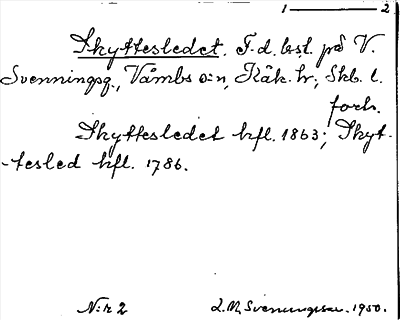 1 — 2
Skyttesledet. F.d. bst. på V.
Svenningsg., Våmbs s:n, Kåk. hr; Skb. l.
forts.
Skyttesledet kfl. 1863; Skyt-
-tesled kfl. 1786.
N:r 2 L. M. Svenungsson. 1950.